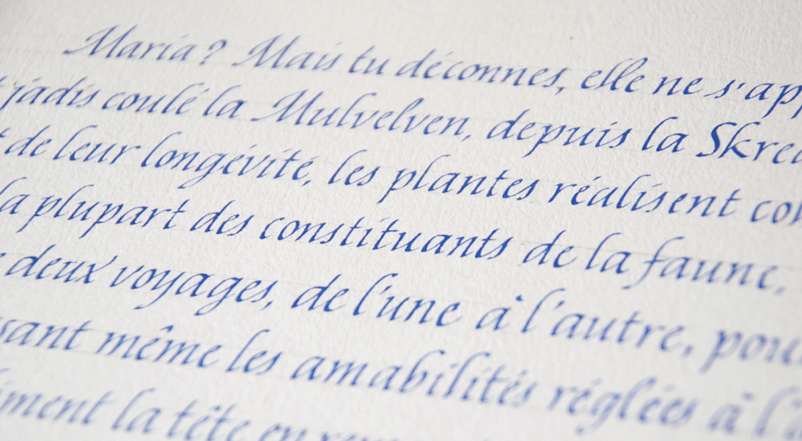 Maria ? Mais tu déconnes, elle ne s'app
jadis coulé la Mulvelven, depuis la Skre
de leur longévité, les plantes réalisent co
la plupart des constituants de la faune,
deux voyages, de l'une à l'autre, pour
sant même les amabilités réglées à l'a
iment la tête en